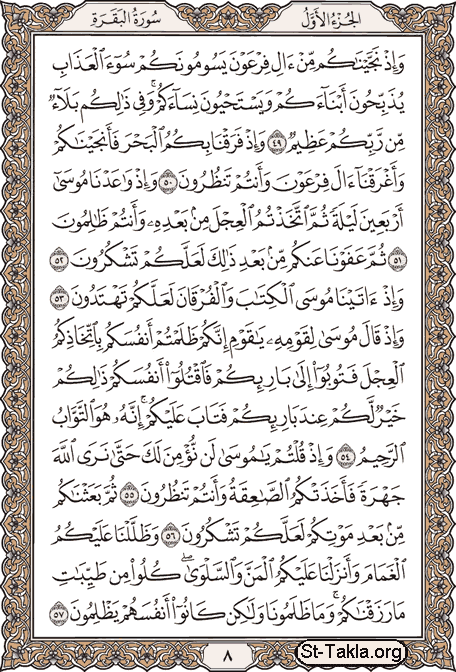 الجزء الأول سورة البقرة
وَإِذْ نَجَّيْنَٰكُم مِّنْ ءَالِ فِرْعَوْنَ يَسُومُونَكُمْ سُوٓءَ ٱلْعَذَابِ
يُذَبِّحُونَ أَبْنَآءَكُمْ وَيَسْتَحْيُونَ نِسَآءَكُمْ ۚ وَفِى ذَٰلِكُم بَلَآءٌ
مِّن رَّبِّكُمْ عَظِيمٌ ٤٩ وَإِذْ فَرَقْنَا بِكُمُ ٱلْبَحْرَ فَأَنجَيْنَٰكُمْ
وَأَغْرَقْنَآ ءَالَ فِرْعَوْنَ وَأَنتُمْ تَنظُرُونَ ٥٠ وَإِذْ وَٰعَدْنَا مُوسَىٰٓ
أَرْبَعِينَ لَيْلَةً ثُمَّ ٱتَّخَذْتُمُ ٱلْعِجْلَ مِنۢ بَعْدِهِۦ وَأَنتُمْ ظَٰلِمُونَ
٥١ ثُمَّ عَفَوْنَا عَنكُم مِّنۢ بَعْدِ ذَٰلِكَ لَعَلَّكُمْ تَشْكُرُونَ ٥٢
وَإِذْ ءَاتَيْنَا مُوسَى ٱلْكِتَٰبَ وَٱلْفُرْقَانَ لَعَلَّكُمْ تَهْتَدُونَ ٥٣
وَإِذْ قَالَ مُوسَىٰ لِقَوْمِهِۦ يَٰقَوْمِ إِنَّكُمْ ظَلَمْتُمْ أَنفُسَكُم بِٱتِّخَاذِكُمُ
ٱلْعِجْلَ فَتُوبُوٓا۟ إِلَىٰ بَارِئِكُمْ فَٱقْتُلُوٓا۟ أَنفُسَكُمْ ذَٰلِكُمْ
خَيْرٌ لَّكُمْ عِندَ بَارِئِكُمْ فَتَابَ عَلَيْكُمْ ۚ إِنَّهُۥ هُوَ ٱلتَّوَّابُ
ٱلرَّحِيمُ ٥٤ وَإِذْ قُلْتُمْ يَٰمُوسَىٰ لَن نُّؤْمِنَ لَكَ حَتَّىٰ نَرَى ٱللَّهَ
جَهْرَةً فَأَخَذَتْكُمُ ٱلصَّٰعِقَةُ وَأَنتُمْ تَنظُرُونَ ٥٥ ثُمَّ بَعَثْنَٰكُم
مِّنۢ بَعْدِ مَوْتِكُمْ لَعَلَّكُمْ تَشْكُرُونَ ٥٦ وَظَلَّلْنَا عَلَيْكُمُ
ٱلْغَمَامَ وَأَنزَلْنَا عَلَيْكُمُ ٱلْمَنَّ وَٱلسَّلْوَىٰ ۖ كُلُوا۟ مِن طَيِّبَٰتِ
مَا رَزَقْنَٰكُمْ ۖ وَمَا ظَلَمُونَا وَلَٰكِن كَانُوٓا۟ أَنفُسَهُمْ يَظْلِمُونَ ٥٧
٨
St-Takla.org